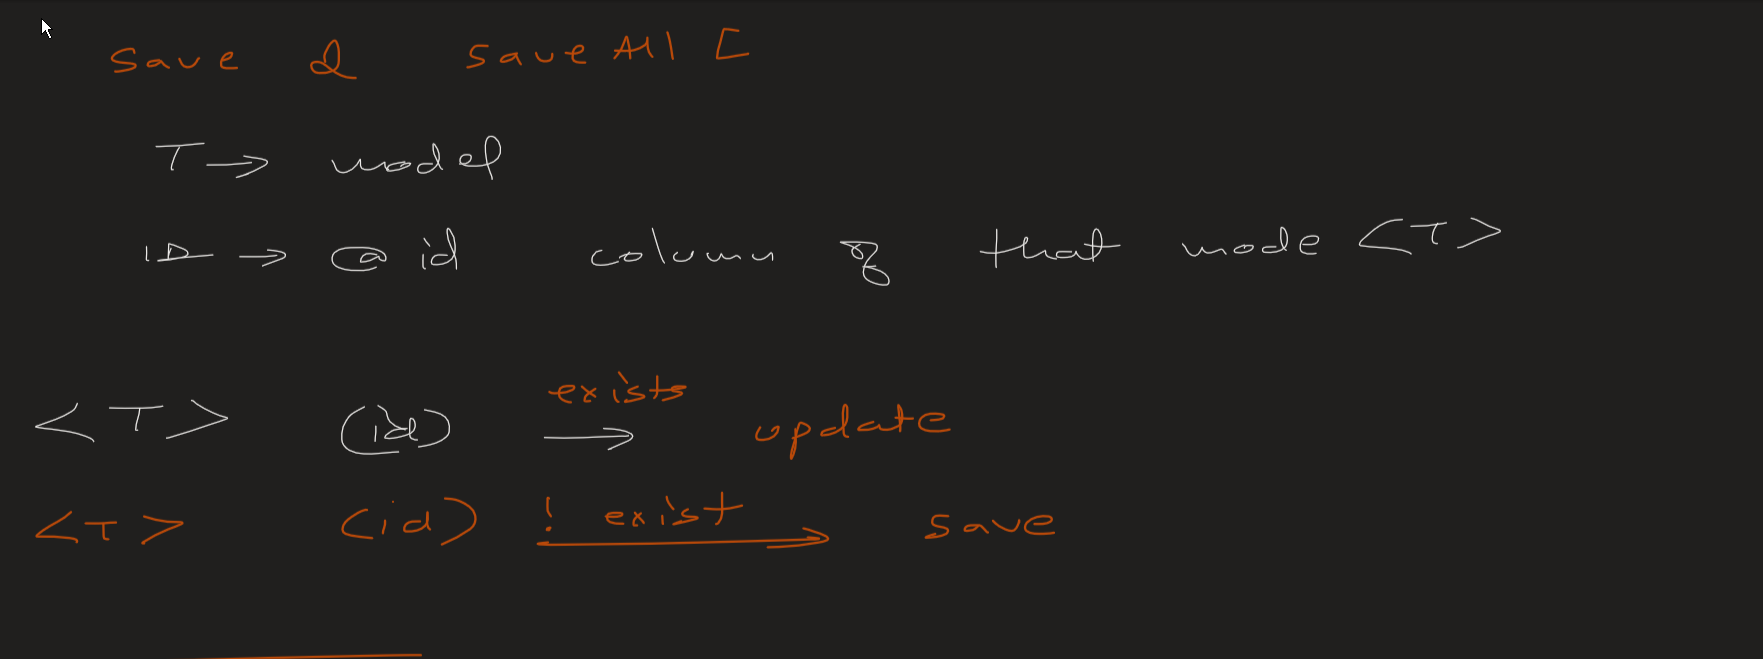 save & save All [
T → model
ID → @ id column of that mode <T>
<T> (id) exists → update
<T> (id) ! exist → save